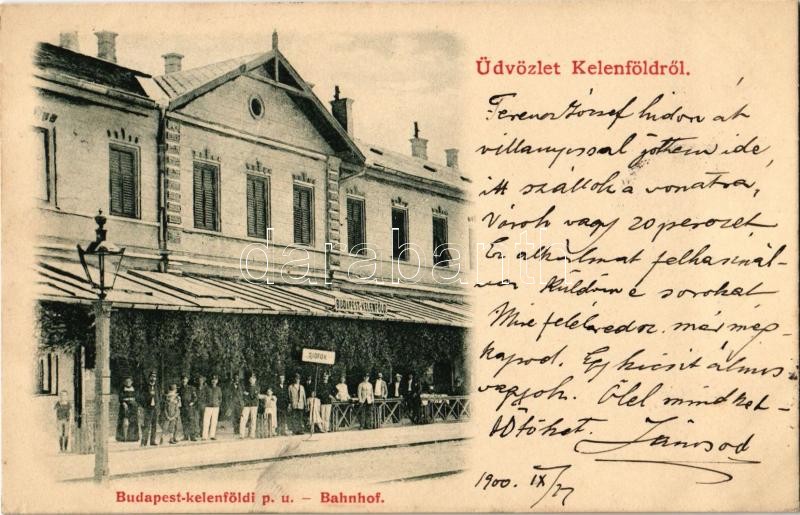 Üdvözlet Kelenföldről.
Ferencz József hidon át
villanyossal jöttem ide
itt szállok a vonatra,
Várok vagy 20 perczet
Ez alkalmat felhasznál-
va küldöm e sorokat
Mire felébredsz már meg-
kapod. Egy kicsit álmos
vagyok. Ölel mindket-
tőtöket. Jánosod
1900. IX/27
BUDAPEST-KELENFÖLD
SIÓFOK
Budapest-kelenföldi p. u. – Bahnhof.
darabanth